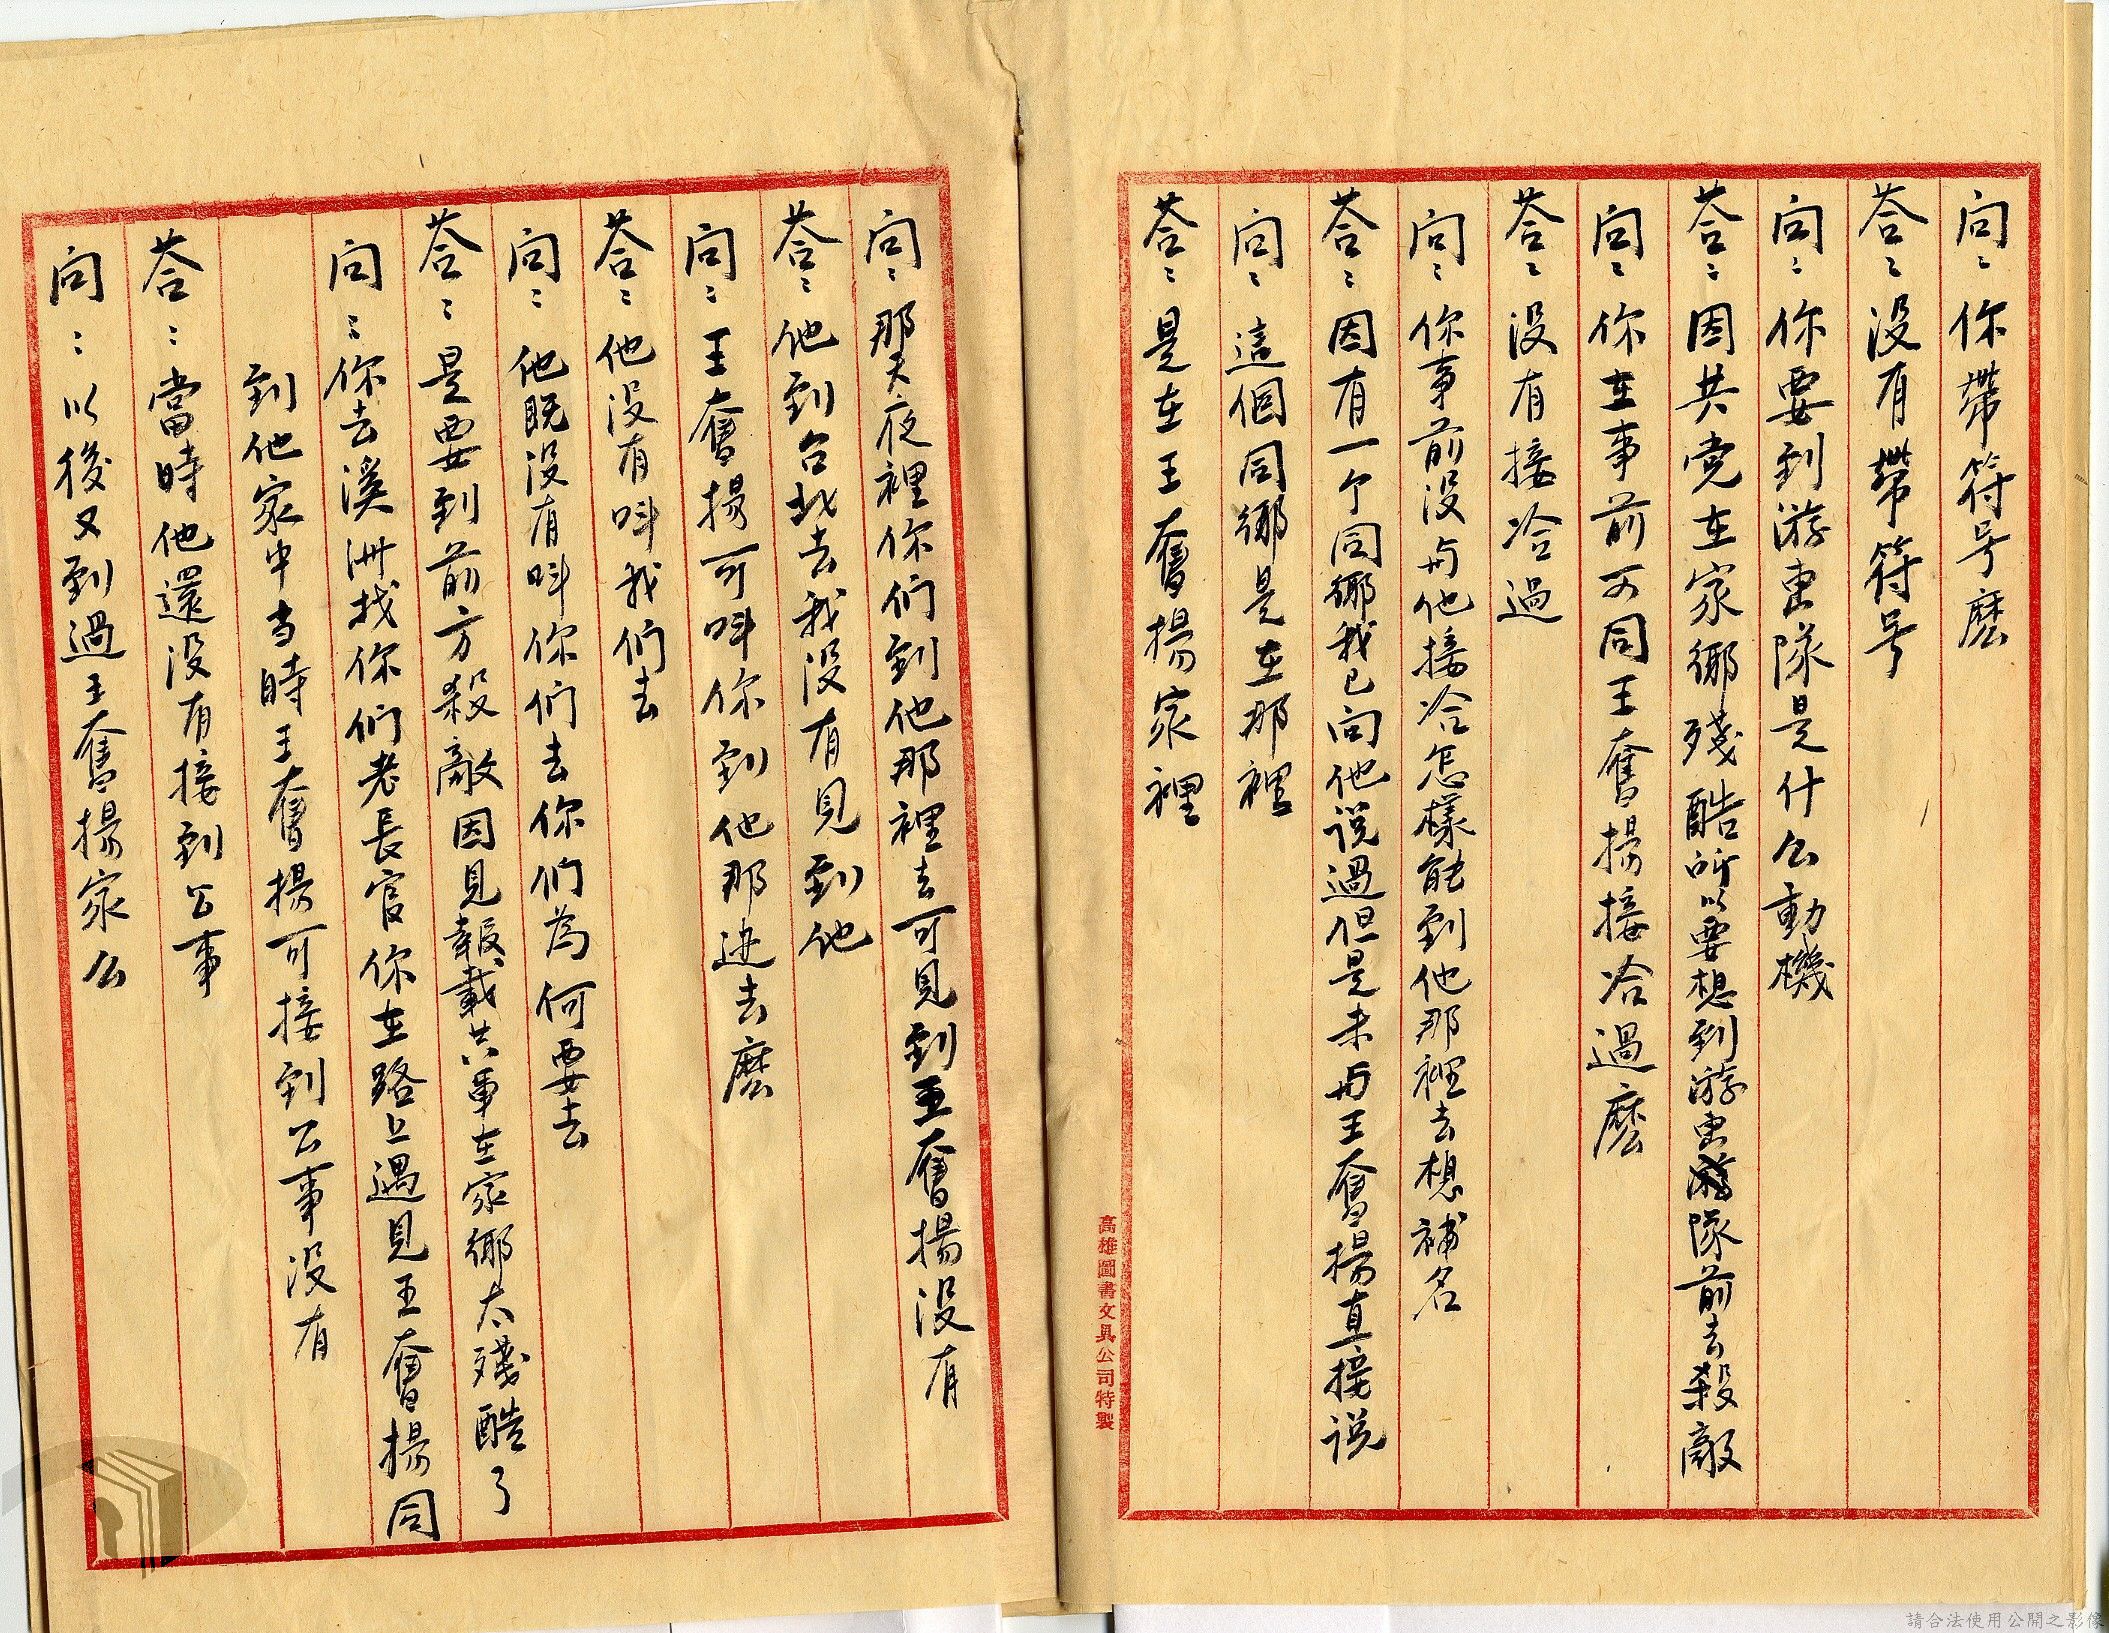 问：你帶符号麽
荅：没有帶符号
问：你要到游击隊是什么動機
荅：因共党在家鄉残酷所以要想到游击隊前去殺敵
问：你在事前可同王奮揚接洽過麽
荅：没有接洽過
问：你事前没与他接洽怎樣能到他那裡去想補名
荅：因有一个同鄉我已向他说過但是未与王奮揚直接说
问：這個同鄉是在那裡
荅：是在王奮揚家裡
高雄圖書文具公司特製
问：那天夜裡你们到他那裡去可見到王奮揚没有
荅：他到台北去我没有見到他
问：王奮揚可呌你到他那边去麽
荅：他没有呌我们去
问：他既没有呌你们去你们為何要去
荅：是要到前方殺敵因見報載共軍在家鄉太残酷了
问：你去溪洲找你们老長官你在路上遇見王奮揚同
到他家中当時王奮揚可接到公事没有
荅：當時他還没有接到公事
问：以後又到過王奮揚家么
請合法使用公開之影像